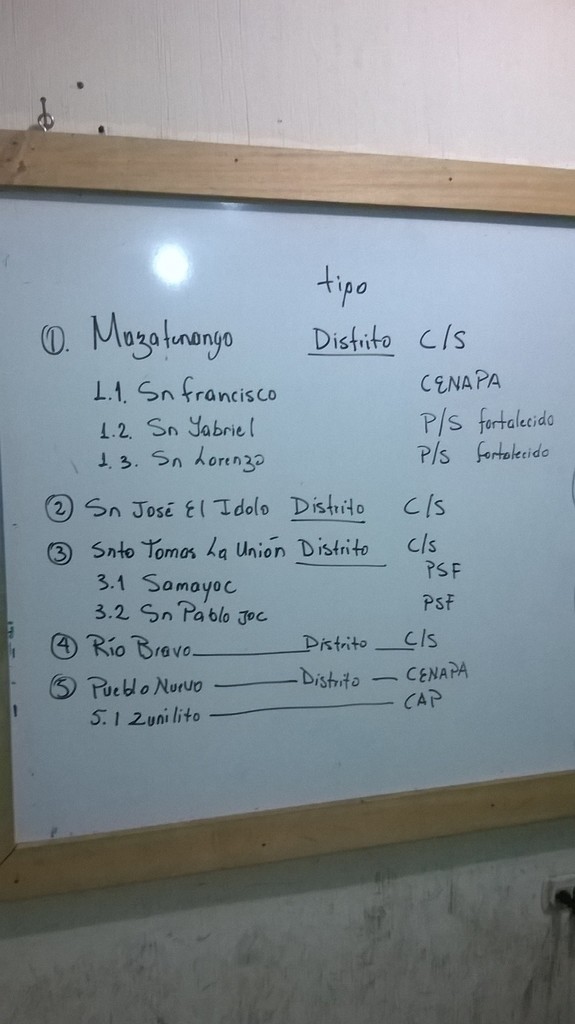 tipo
①. Mazatenango Distrito C/S
1.1. Sn Francisco CENAPA
1.2. Sn Gabriel P/S fortalecido
1.3. Sn Lorenzo P/S fortalecido
② Sn José El Idolo Distrito C/S
③ Snto Tomas La Unión Distrito C/S
3.1 Samayoc PSF
3.2 Sn Pablo Joc PSF
④ Río Bravo Distrito C/S
⑤ Pueblo Nuevo Distrito CENAPA
5.1 Zunilito CAP